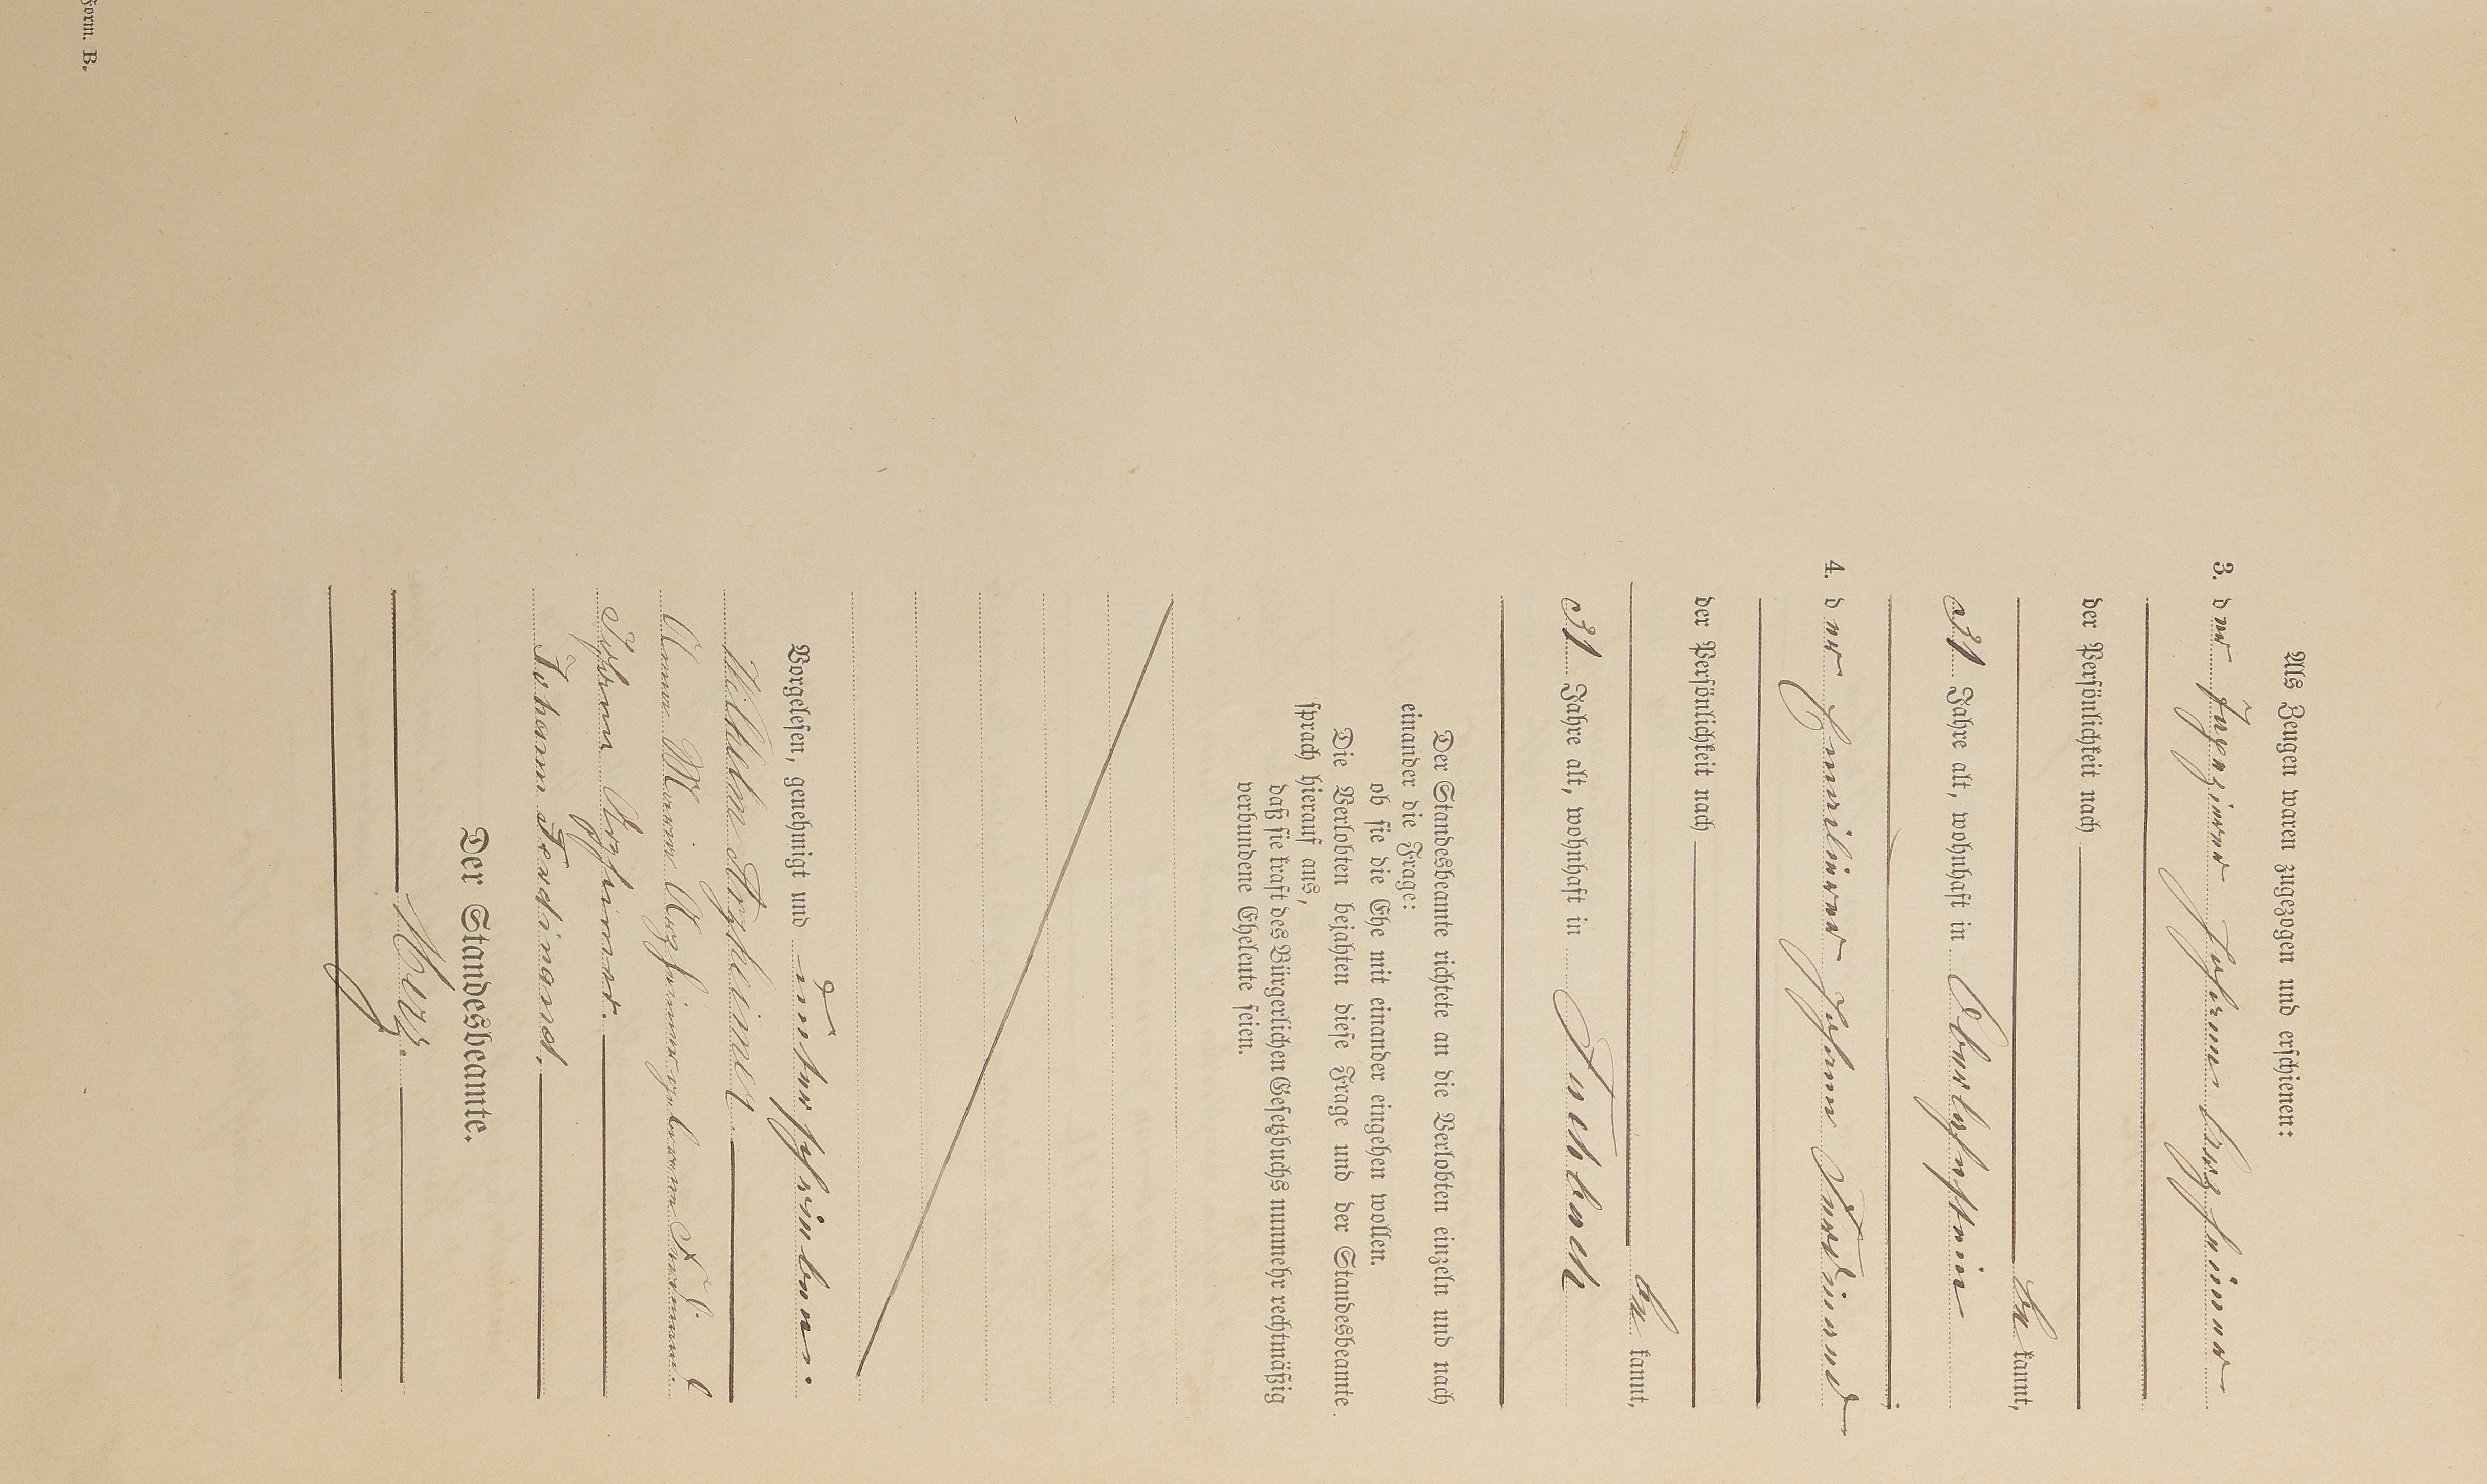 Als Zeugen waren zugezogen und erschienen:
3. der Ingenieur Johann Argheimer
der Persönlichkeit nach
be kannt,
31 Jahre alt, wohnhaft in Oberlahnstein
4. der Johann Ferdinand
der Persönlichkeit nach
be kannt,
31 Jahre alt, wohnhaft in Fachbach
Der Standesbeamte richtete an die Verlobten einzeln und nach
einander die Frage:
ob sie die Ehe mit einander eingehen wollen.
Die Verlobten bejahten diese Frage und der Standesbeamte
sprach hierauf aus,
daß sie kraft des Bürgerlichen Gesetzbuchs nunmehr rechtmäßig
verbundene Eheleute seien.
Vorgelesen, genehmigt und unterschrieben.
Wilhelm Argheimer
Anna Maria Argheimer geborene Ferdinand
Johann Argheimer.
Johann Ferdinand.
Der Standesbeamte.
Form. B.